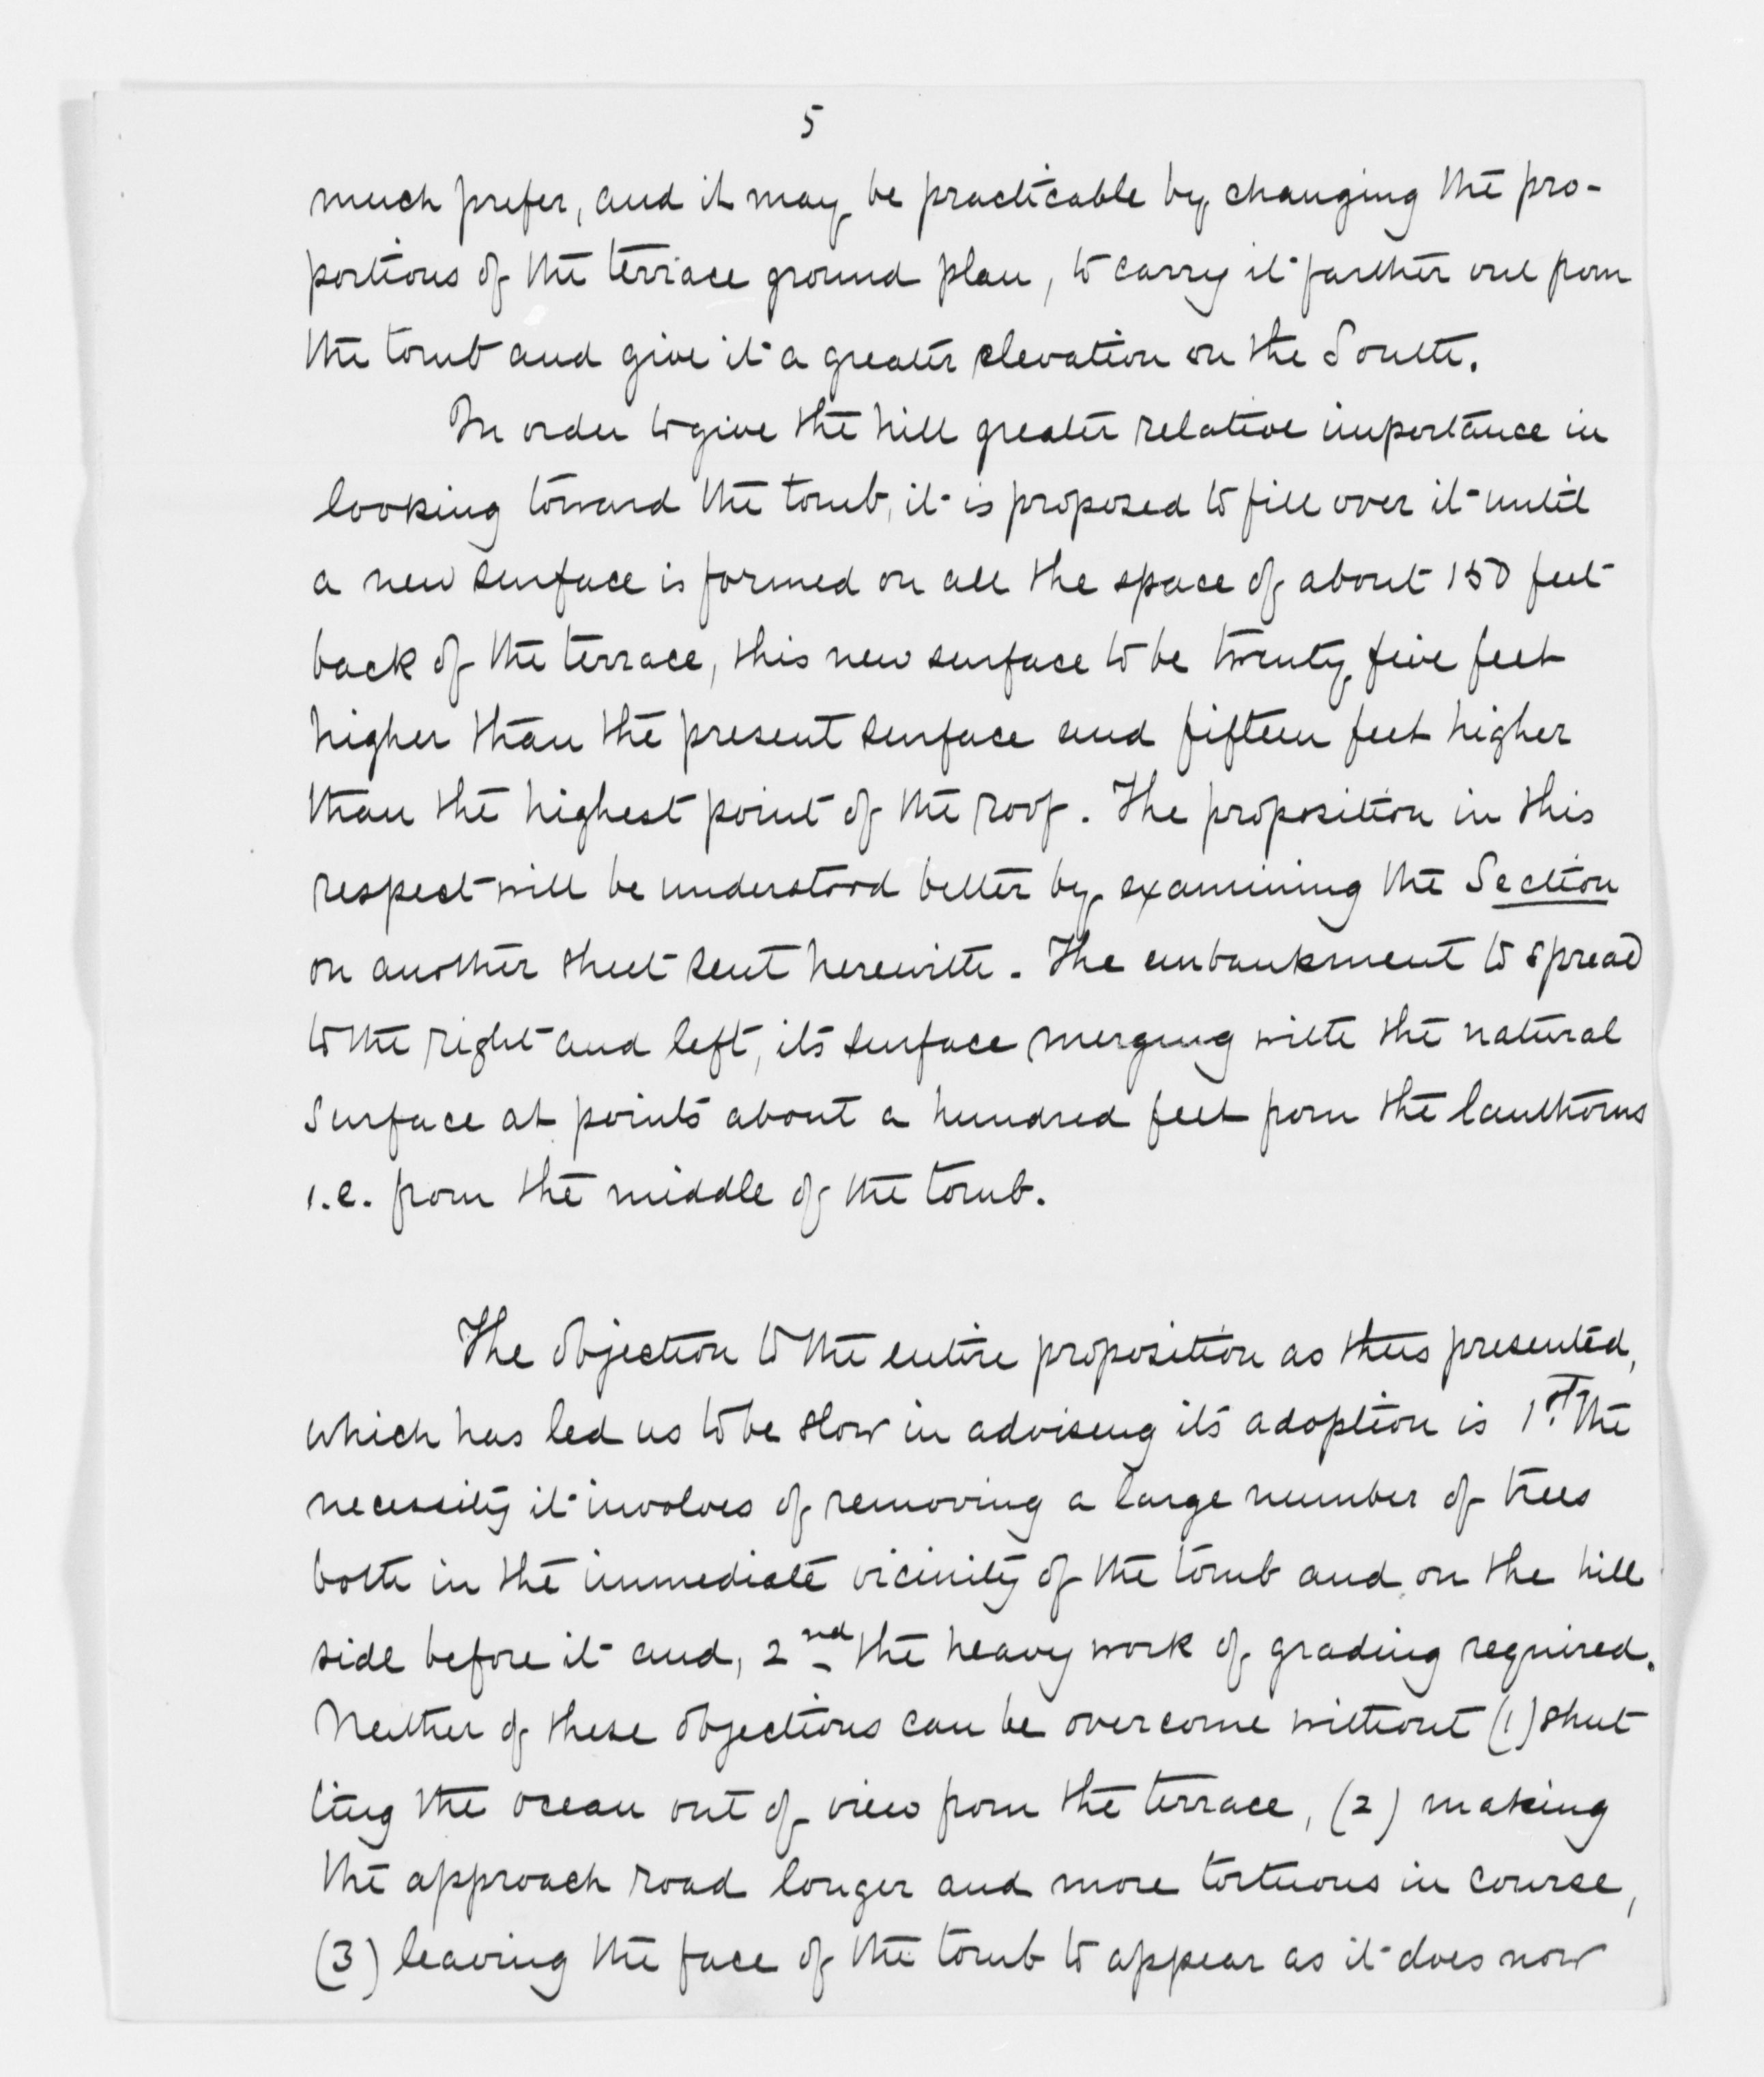 5
much prefer, and it may be practicable by changing the pro-
portions of the terrace ground plan, to carry it farther out from
the tomb and give it a greater elevation on the South.
In order to give the hill greater relative importance in
looking toward the tomb, it is proposed to fill over it until
a new surface is formed on all the space of about 150 feet
back of the terrace, this new surface to be twenty five feet
higher than the present surface and fifteen feet higher
than the highest point of the roof. The proposition in this
respect will be understood better by examining the Section
on another sheet sent herewith. The embankment to spread
to the right and left, its surface merging with the natural
surface at points about a hundred feet from the lanthorns
i.e. from the middle of the tomb.
The objection to the entire proposition as thus presented,
which has led us to be slow in advising its adoption is 1st. the
necessity it involves of removing a large number of trees
both in the immediate vicinity of the tomb and on the hill
side before it and, 2nd the heavy work of grading required.
Neither of these objections can be overcome without (1) shut
ting the ocean out of view from the terrace, (2) making
the approach road longer and more tortuous in course,
(3) leaving the face of the tomb to appear as it does now